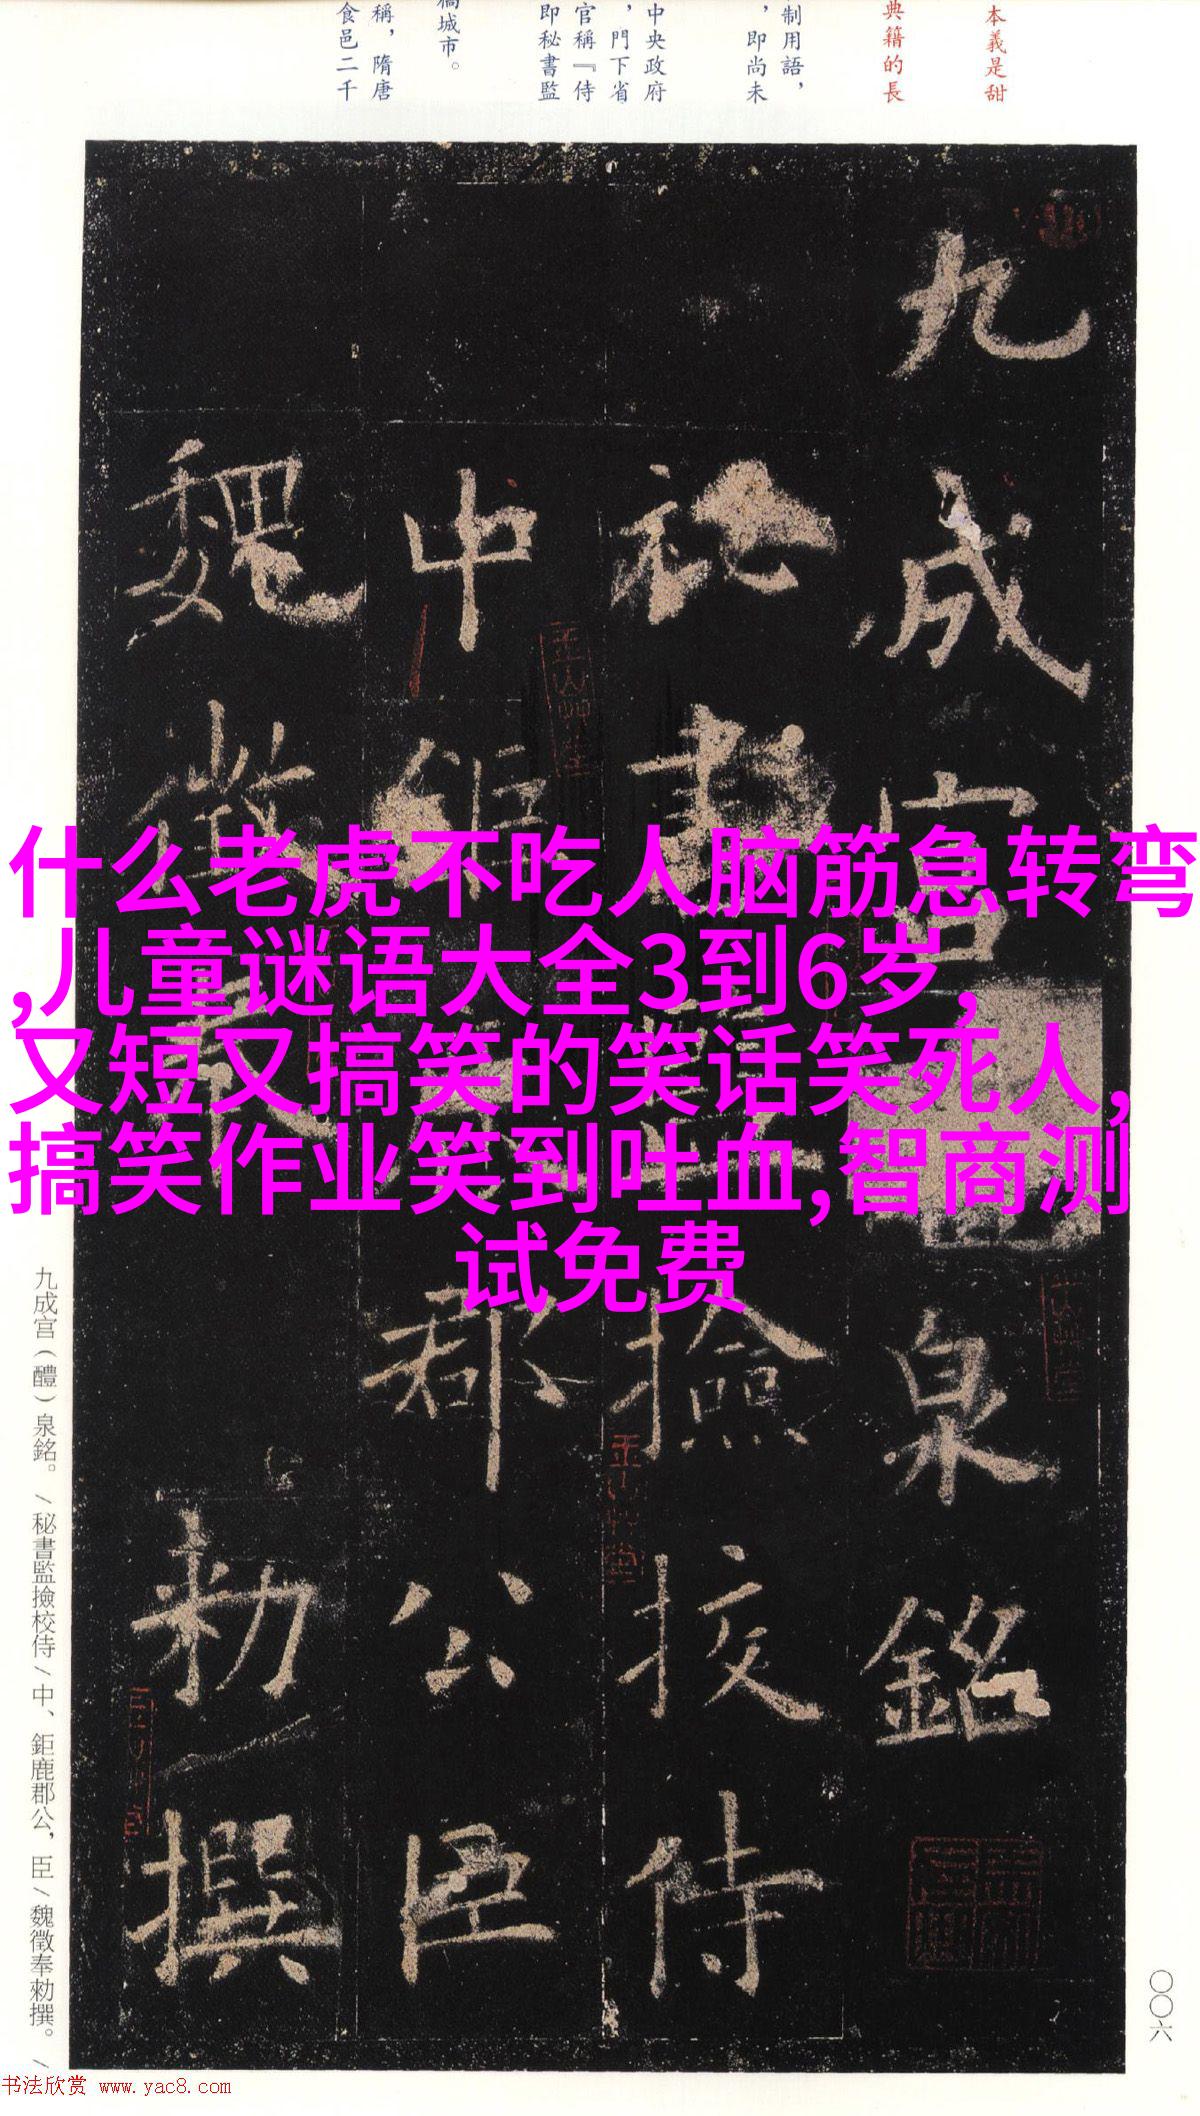 本義是甜
典籍的長
制用語，
，即尚未
中央政府
，門下省
官稱『侍
即秘書監
城市。
稱，隋唐
食邑二千
九成宮
泉銘
祕書
撿挍侍
中
郡公臣
魏徵
勑撰
什么老虎不吃人脑筋急转弯
,儿童谜语大全3到6岁,
又短又搞笑的笑话笑死人,
搞笑作业笑到吐血,智商测
试免费
九成宫（醴）泉銘。/秘書監撿校侍/中、鉅鹿郡公，臣/魏徵奉勑撰。/
〇〇六
书法欣赏 www.yac8.com